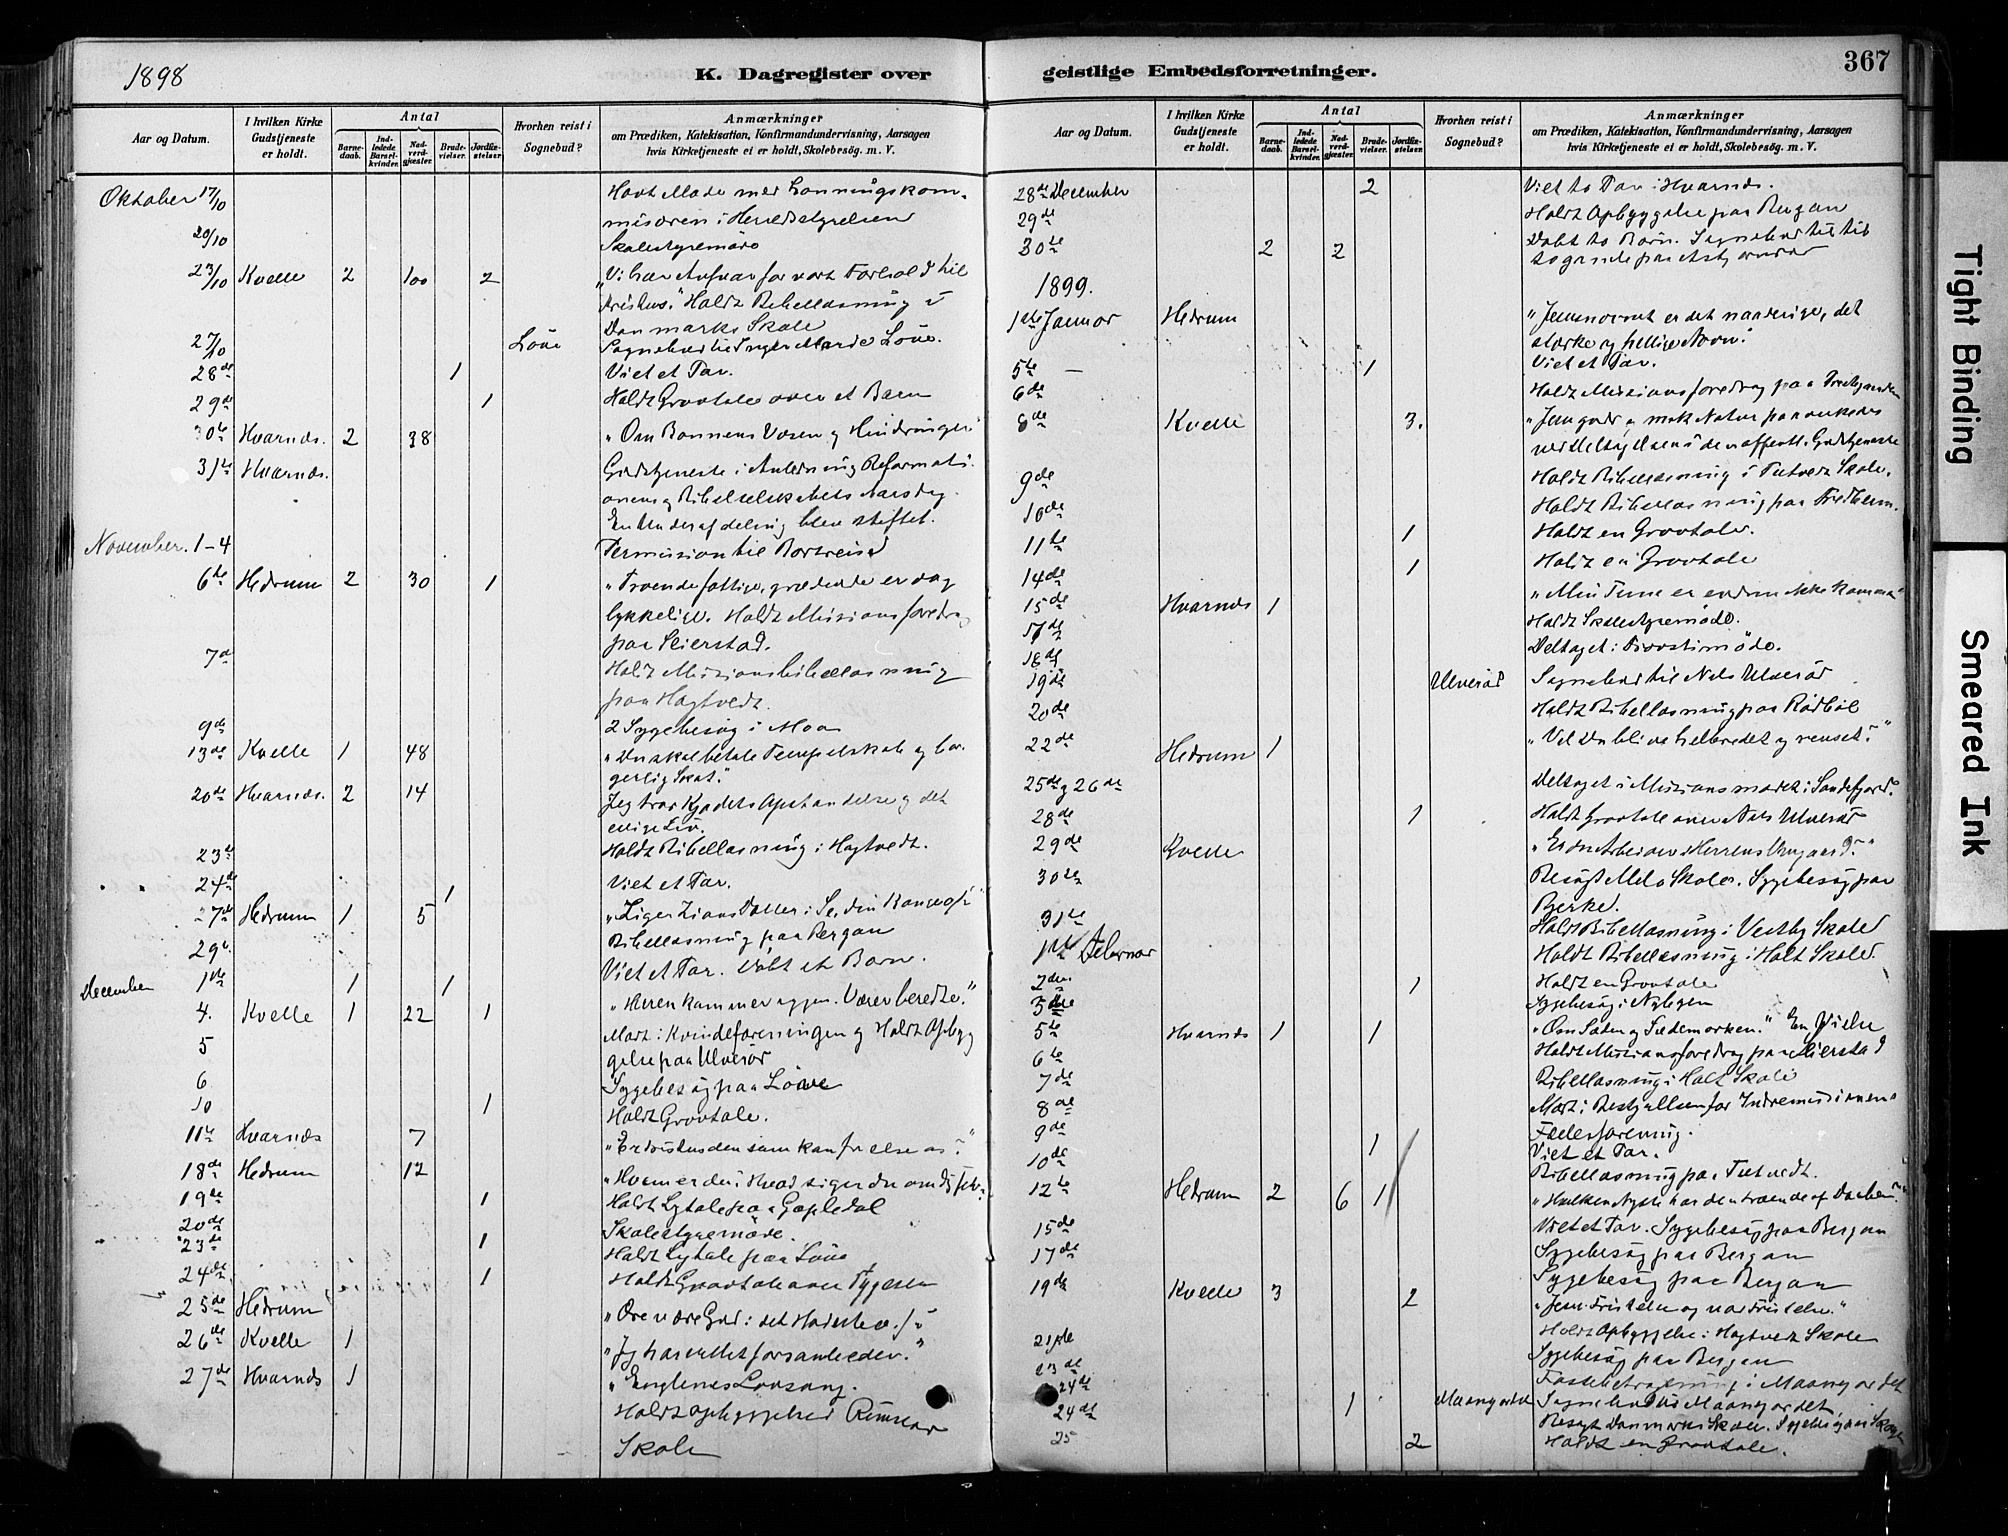 1898
K. Dagregister over
geistlige Embedsforretninger.
367
Aar og Datum.
I hvilken Kirke Gudstjeneste er holdt.
Antal
Barnedaab.
Indledede Barselkvinder.
Nadverdgjæster.
Brudevielser.
Jordfæstelser.
Hvorhen reist i Sognebud?
Anmærkninger
om Prædiken, Katekisation, Konfirmandundervisning, Aarsagen
hvis Kirketjeneste ei er holdt, Skolebesög. m. V.
Oktober 17/10 Havt Møde med
i Herredsstyrelsen
20/10 Skolestyremøde
23/10 Kvelle 2 100 2 "Vi har Ansvar for vort Forhold til
Kristus." Holdt Bibellæsning i
Danmarks Skole
27/10 Löve Sognebud til Løve.
28de 1 Viet et Par.
29de 1 Holdt Gravtale over et Barn
30te Hvarnæs. 2 38 "Om Bønnens Væsen og Hindringer"
31te Hvarnæs. Gudstjeneste i Anledning Reformati-
onens og Bibelselskabets Aarsdag.
En Underafdeling blev stiftet.
November. 1-4 Permission til Bortreise
6te Hedrum 2 30 1 "Troende fattige, grædende er dog
lykkelige. Holdt Missionsforedrag
paa Seierstad.
7de Holdt Missionsbibellæsning
paa Hagtvedt.
9de 2 Sygebesøg i Moa
13de Kvelle 1 48 "Du skal betale Tempelskat og bor-
gerlig Skat."
20de Hvarnæs. 2 14 Jeg tror Kjødets Opstandelse og det
evige Liv.
23de Holdt Bibellæsning i Hagtvedt.
24de 1 Viet et Par.
27de Hedrum 1 5 "Siger Zions Datter: Se, din Konge
29de Bibellæsning paa Bergan
December 1ste 1 1 Viet et Par. Døbt et Barn.
4. Kvelle 1 22 1 "Herren kommer igjen. Værer beredte."
5 Mødt i Kvindeforeningen og Holdt Opbyg
gelse paa Ulverör
6 Sygebesøg paa Löve
10 1 Holdt Gravtale.
11te Hvarnæs 7 "Er Kristus den som kan frelse os?"
18de Hedrum 12 "Hvem er du? Hvad siger du om dig selv?
19de 1 Holdt Ligtale paa Gopledal
20de Skolestyremøde.
23de 1 Holdt Ligtale paa Löve
24de 1 Holdt Gravtale over
25de Hedrum "Ære være Gud i det Høieste."
26de Kvelle 1 "Jeg har villet forsamle eder."
27de Hvarnæs 1 "Englenes Lovsang.
Holdt Opbyggelse i
Skole
Aar og Datum.
I hvilken Kirke Gudstjeneste er holdt.
Antal
Barnedaab.
Indledede Barselkvinder.
Nadverdgjæster.
Brudevielser.
Jordfæstelser.
Hvorhen reist i Sognebud?
Anmærkninger
om Prædiken, Katekisation, Konfirmandundervisning, Aarsagen
hvis Kirketjeneste ei er holdt, Skolebesög. m. V.
28de December 2 Viet to Par i Hvarnæs.
29de Holdt Opbyggelse paa Bergan
30te 2 2 Døbt to Børn. Sognebud til
to
1899.
1ste Januar Hedrum "Jesunavnet er det naaderige, det
stærke og hellige Navn."
5te 1 Viet et Par.
6de Holdt Missionsforedrag paa Prestegaarden
8de Kvelle 3.
ved Deltagelsen i den offentl. Gudstjeneste
9de Holdt Bibellæsning i Tutvedt Skole.
10de Holdt Bibellæsning paa Fredheim.
11te 1 Holdt en Gravtale.
14de 1 Holdt en Gravtale
15de Hvarnæs 1 "Min Time er endnu ikke kommen"
17de Holdt Skolestyremøde.
18de Deltaget i Provstimøde.
19de Ulverör Sognebud til Nels Ulverör
20de Holdt Bibellæsning paa Rødbøl
22de Hedrum 1 "Vil Du blive helbredet og renset?"
25de og 26de Deltaget i Missionsmødet i Sandefjord.
28de 1 Holdt Gravtale over Nels Ulverör
29de Kvelle "Er du Arbeider i Herrens Vingaard?"
30te Besøgt Melø Skole. Sygebesøg paa
Bjerke.
31te Holdt Bibellæsning i Vestby Skole
1ste Februar Holdt Bibellæsning i Holt Skole.
2den 1 Holdt en Gravtale
3die Sygebesøg i Nybyen
5te Hvarnæs 1 1 "Om Sæden og Sædemarken." En Vielse
6te Holdt Missionsforedrag paa Seierstad
7de Bibellæsning i Holt Skole
8de Mødt i Bestyrelsen for Indremissionens
Fællesforening.
9de 1 Viet et Par.
10de Bibellæsning paa Tutvedt.
12te Hedrum 2 6 1 "Hvilken Nytte har den troende af Daaben?"
15de Viet et Par. Sygebesøg paa Bergan
17de Sygebesøg paa Bergan
Sygebesøg paa Bergan
19de Kvelle 3 2 "Jesu Fristelse og vor Fristelse."
21de Holdt Opbyggelse i Hagtvedt Skole
23de Sygebesøg paa Bergan
24de Fastebetragtning i
24de 1 Sognebud
Besøgt Danmarks Skole. Sygebesøg
25 2 Holdt en Gravtale.
Tight Binding
Smeared Ink